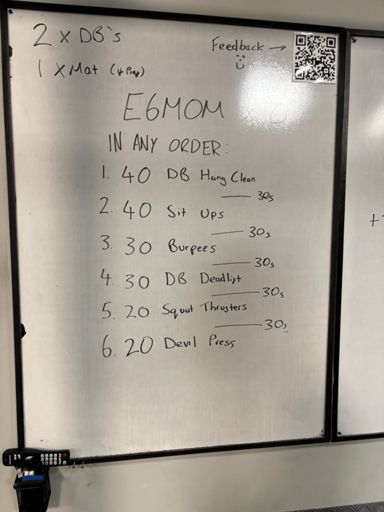 2 x DB's
Feedback →
1 x Mat
E6MOM
IN ANY ORDER:
1. 40 DB Hang Clean
30s
2. 40 Sit Ups
30s
3. 30 Burpees
30s
4. 30 DB Deadlift
30s
5. 20 Squat Thrusters
30s
6. 20 Devil Press